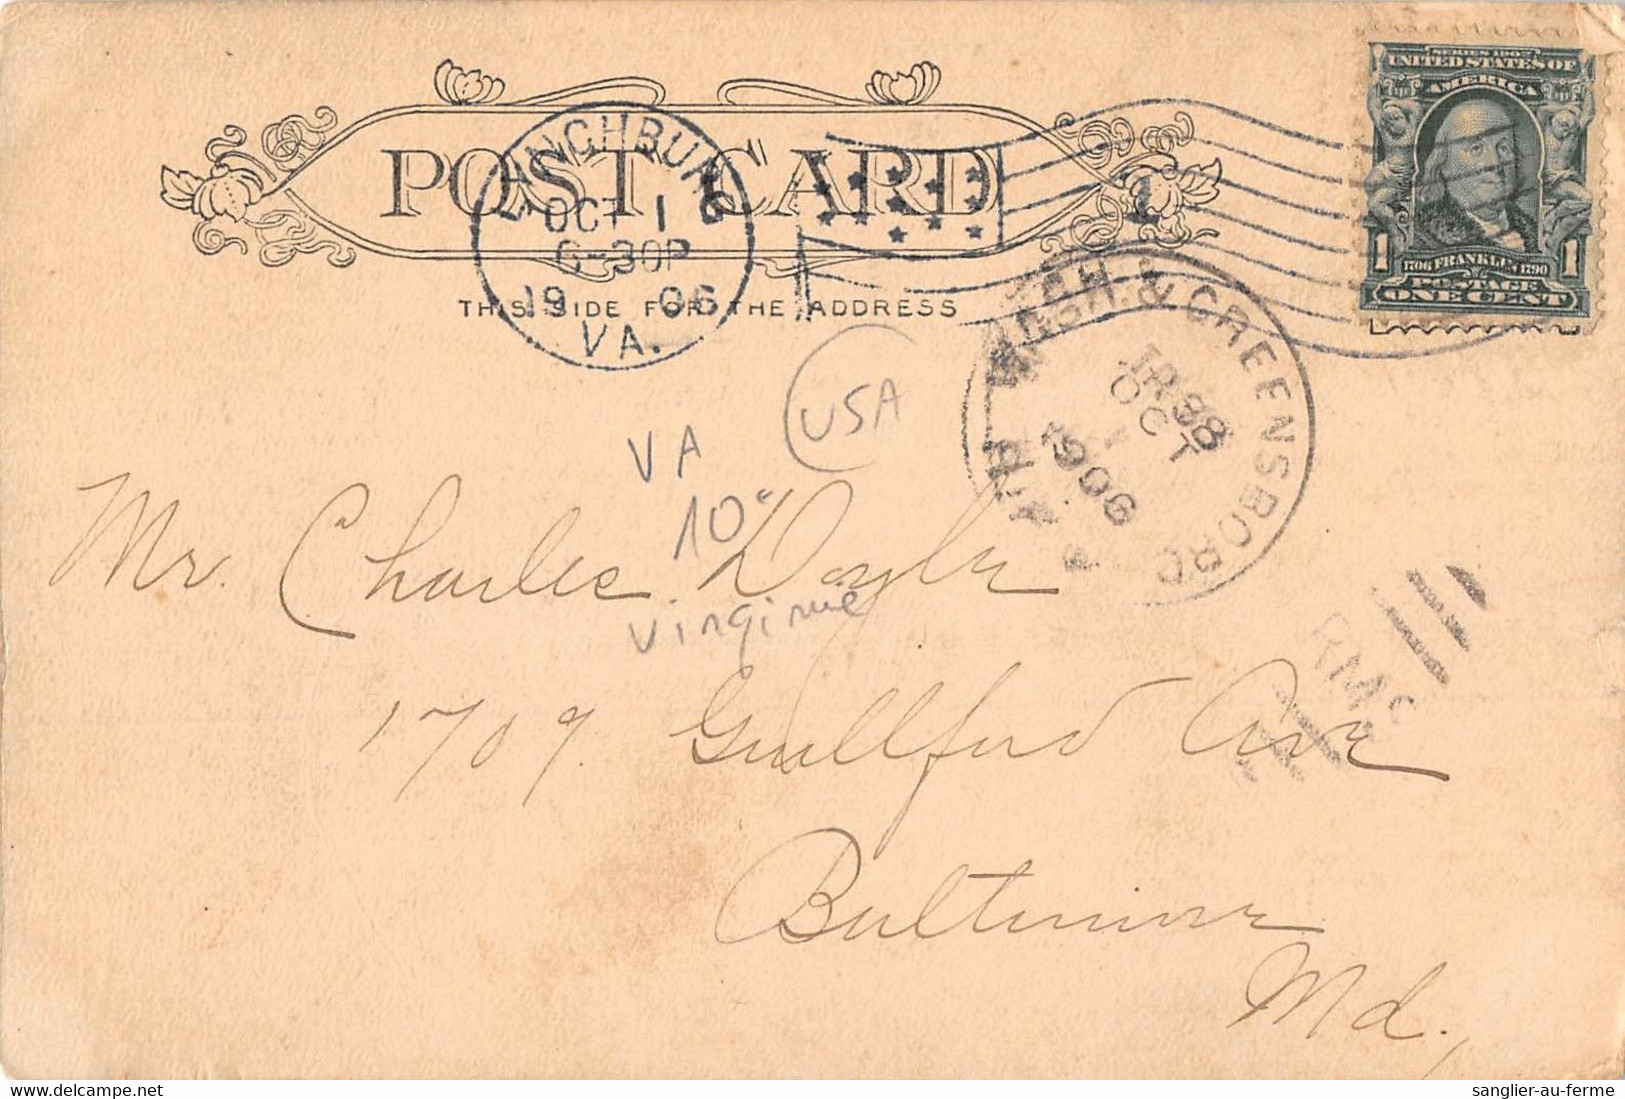 SERIES 1902
UNITED STATES OF
AMERICA
1 1706 FRANKLIN 1790 1
POSTAGE
ONE CENT
POST CARD
THIS SIDE FOR THE ADDRESS
LYNCHBURG
OCT 1
6-30P
19 06
VA.
1
WASH. & GREENSBORO
TR 38
OCT
1
1906
R.P.O.
RMS
USA
VA
10€
Virginie
Mr. Charles Doyle
1709 Guilford Ave
Baltimore
Md.,
delcampe.net
sanglier-au-ferme